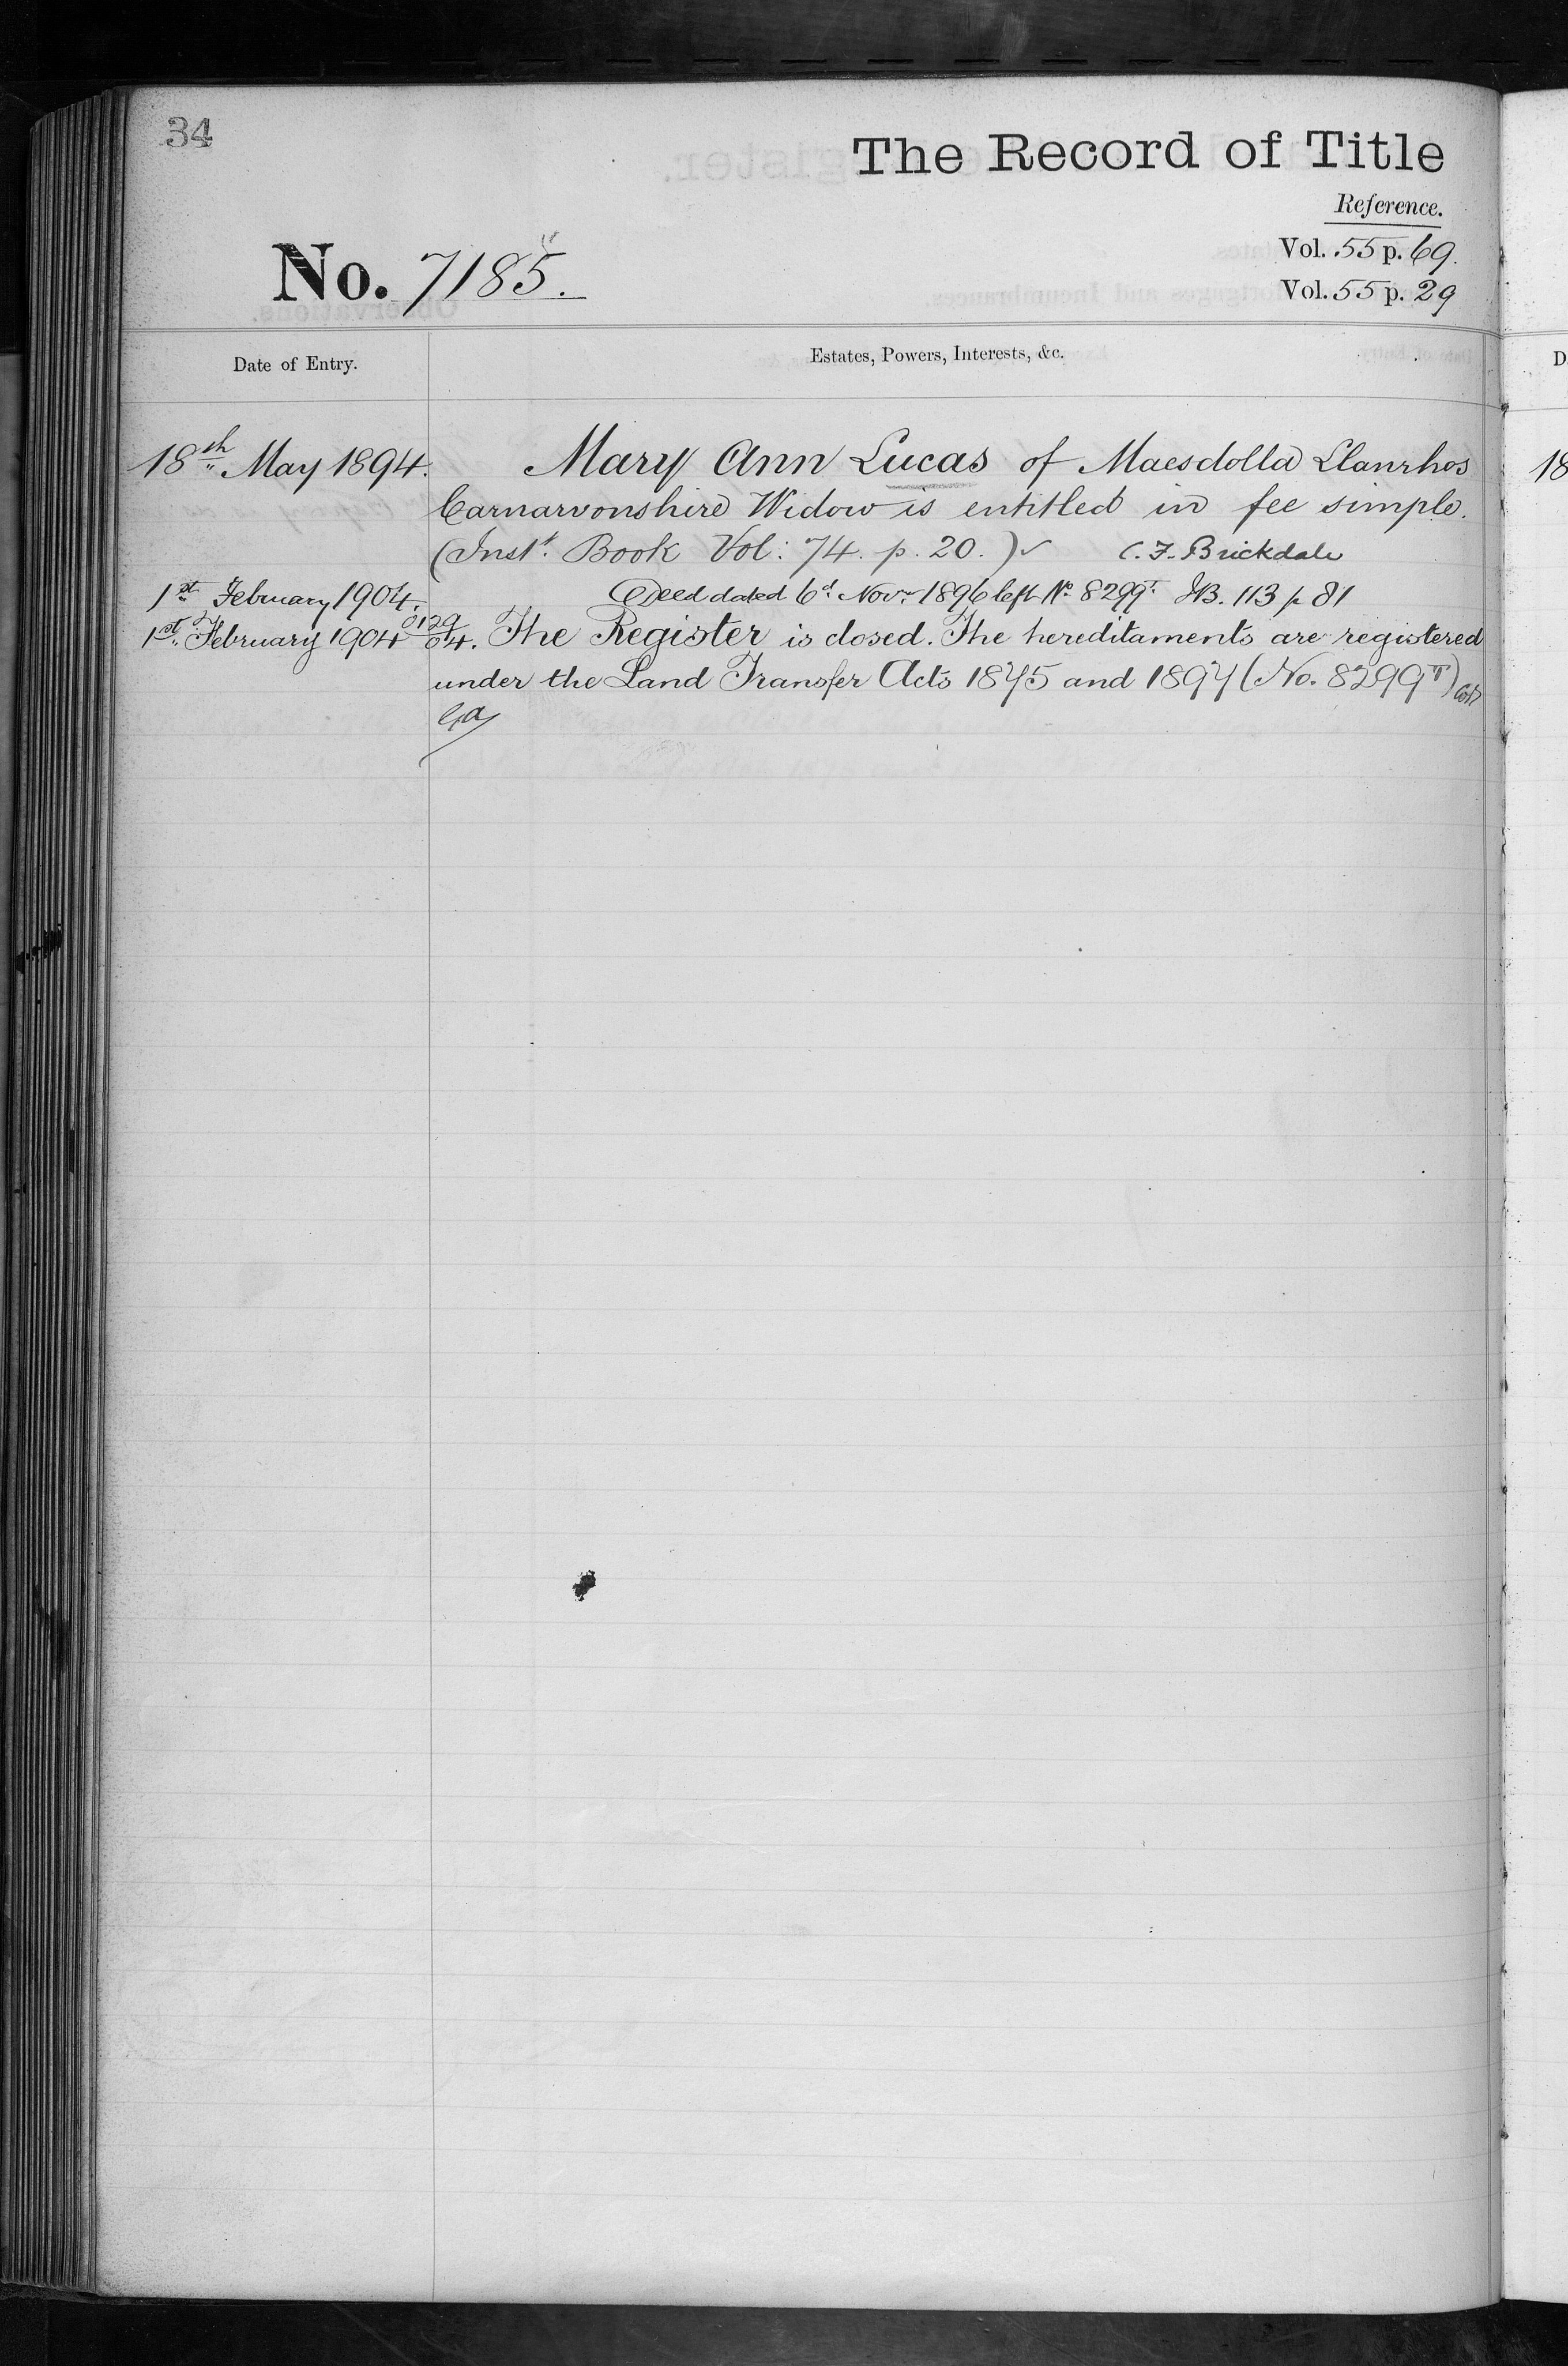 34
The Record of Title
Reference.
No. 7185.
Vol. 55 p. 69.
Vol. 55 p. 29
Date of Entry.
Estates, Powers, Interests, &c.
18th May 1894.
Mary Ann Lucas of Maesdolla Llanrhos
Carnarvonshire Widow is entitled in fee simple.
(Inst. Book Vol: 74. p. 20.) ✓ C. F. Brickdale
1st February 1904.
Deed dated 6d Novr 1896 left No 8299T IB. 113 p 81
1st February 1904 0129/04. The Register is closed. The hereditaments are registered
under the Land Transfer Acts 1875 and 1897 (No. 8299T)
D
18